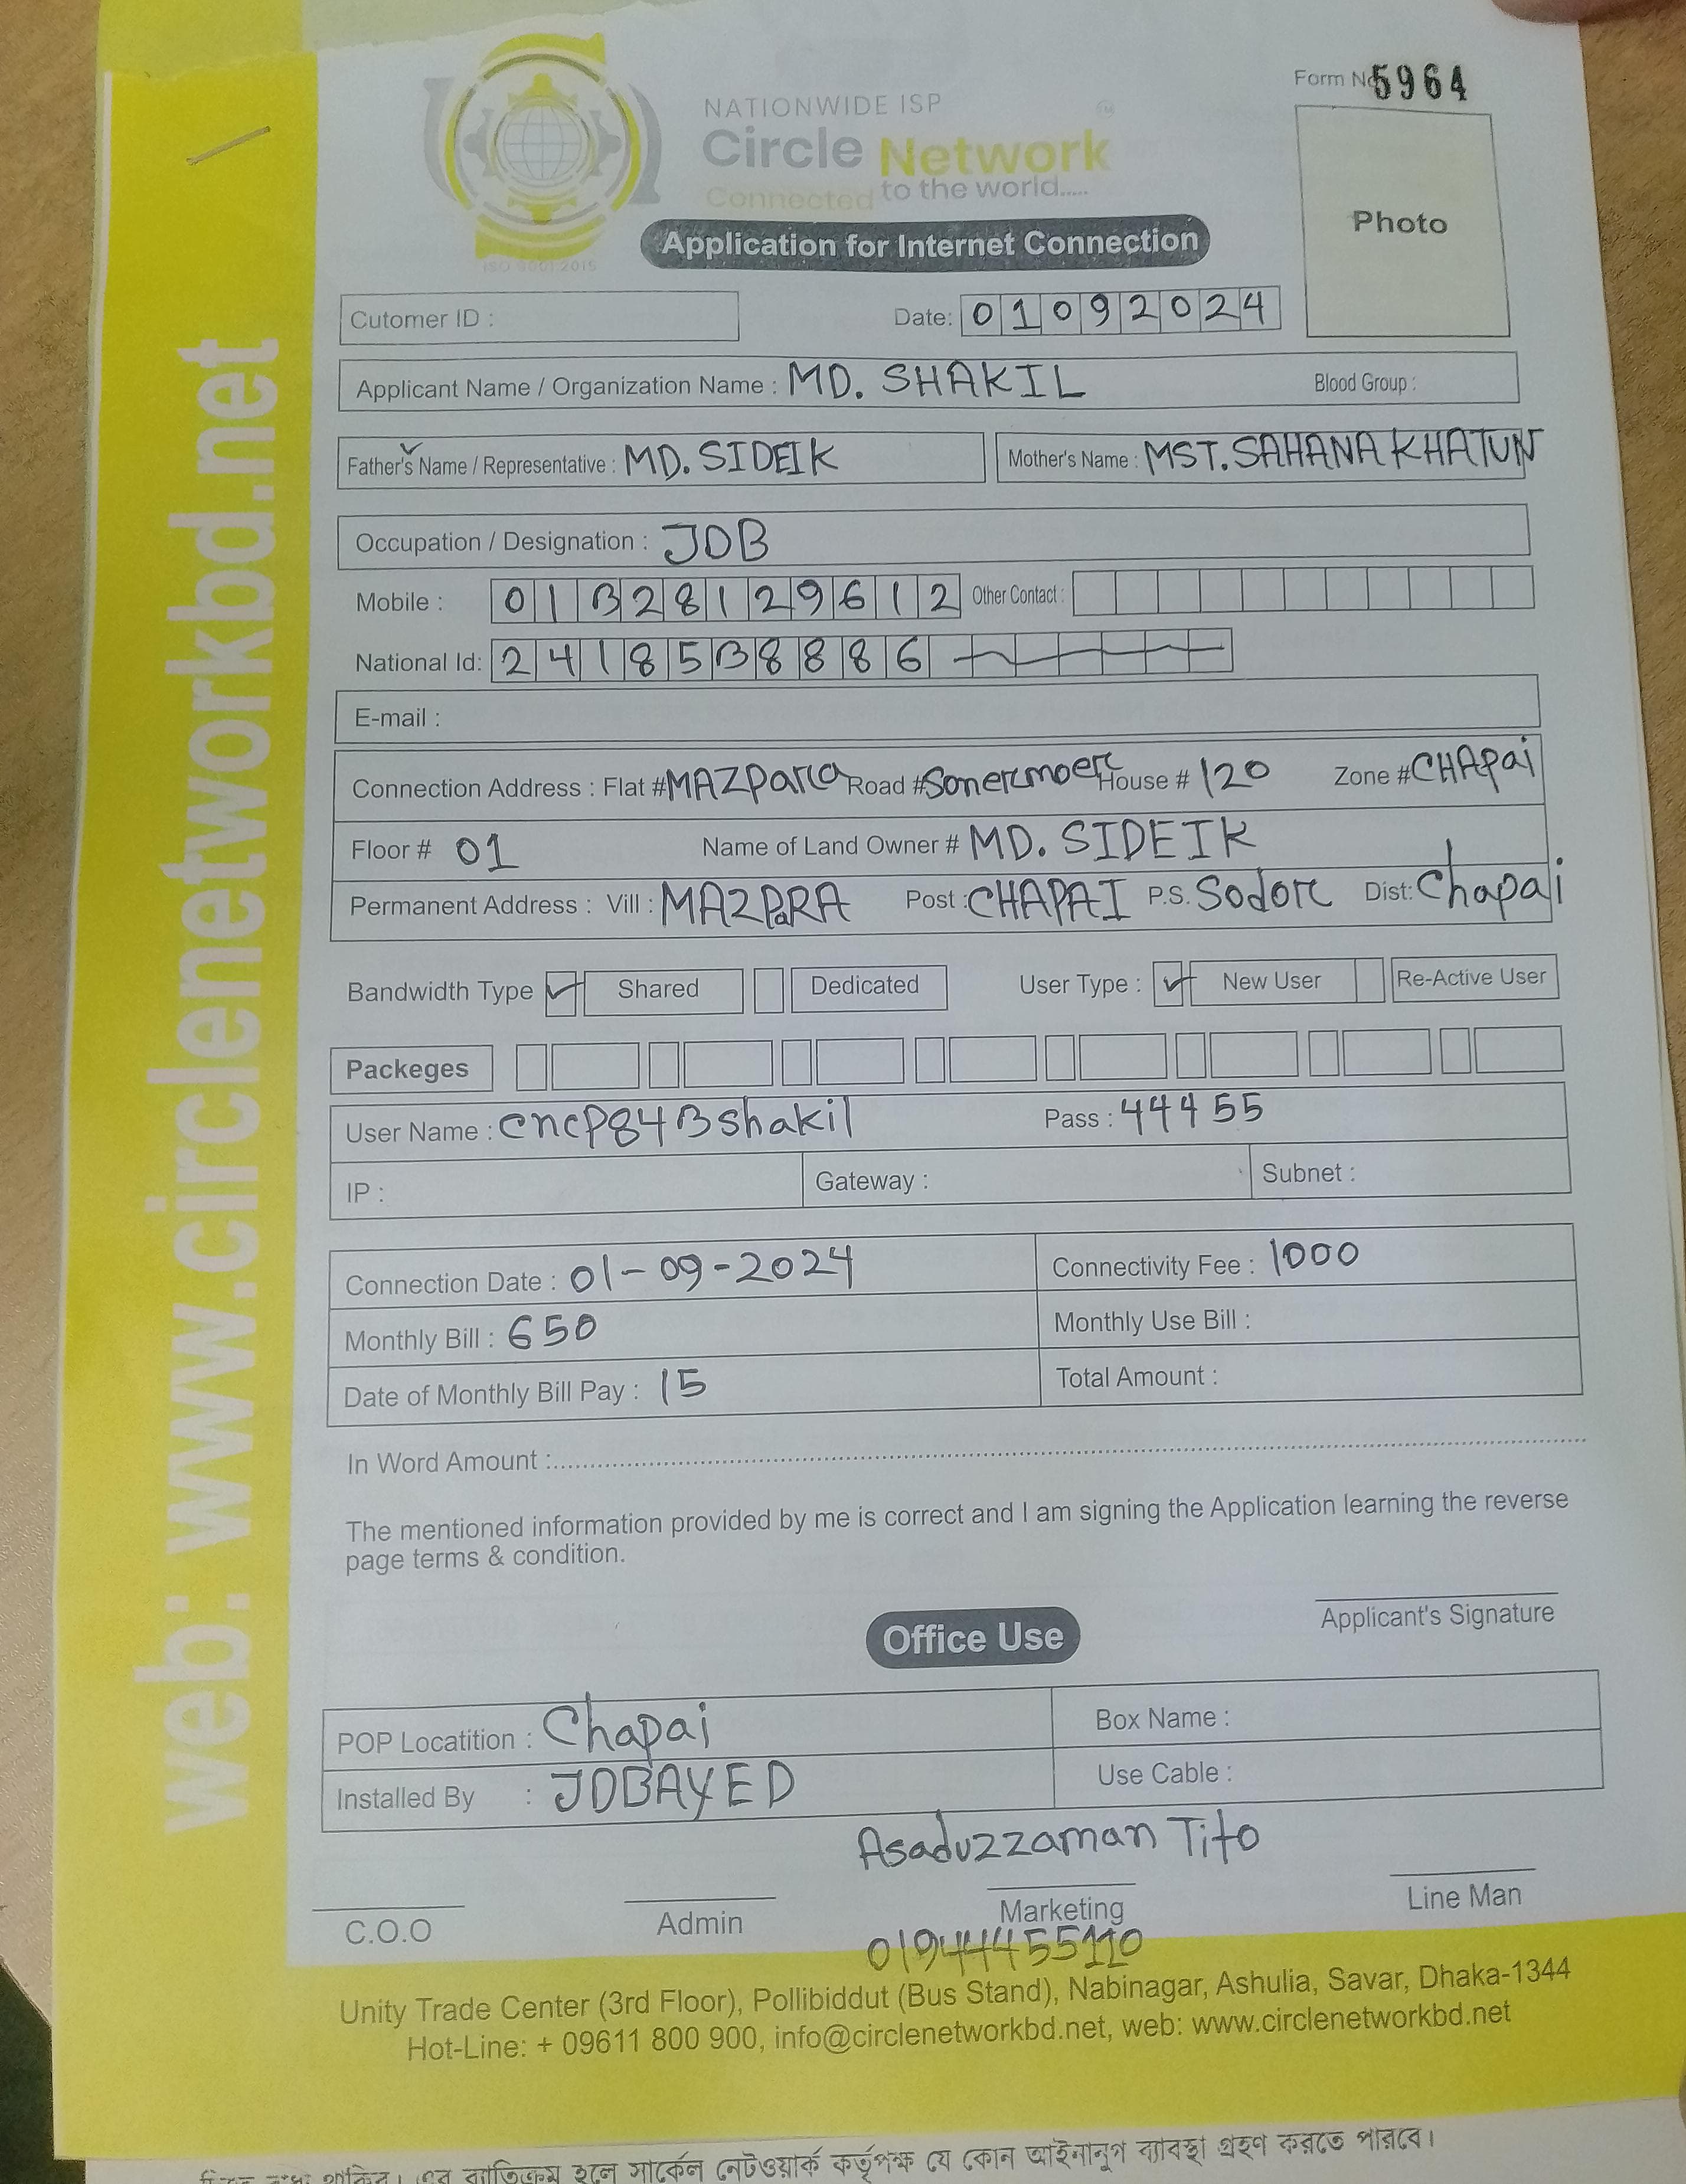 Form No 5964
NATIONWIDE ISP
Circle Network
Connected to the world.....
ISO 9001:2015
Application for Internet Connection
Photo
Cutomer ID :
Date: 01092024
Applicant Name / Organization Name : MD. SHAKIL Blood Group :
Father's Name / Representative : MD. SIDEIK Mother's Name : MST. SAHANA KHATUN
Occupation / Designation : JOB
Mobile : 01328129612 Other Contact :
National Id: 2418538886
E-mail :
Connection Address : Flat #MAZpara Road #Sonermoer House # 120 Zone #CHApai
Floor # 01 Name of Land Owner # MD. SIDEIK
Permanent Address : Vill : MAZPaRA Post : CHAPAI P.S. Sodor Dist: Chapai
Bandwidth Type Shared Dedicated User Type : New User Re-Active User
Packeges
User Name : cncp843shakil Pass : 44455
IP : Gateway : Subnet :
Connection Date : 01-09-2024 Connectivity Fee : 1000
Monthly Bill : 650 Monthly Use Bill :
Date of Monthly Bill Pay : 15 Total Amount :
In Word Amount :
The mentioned information provided by me is correct and I am signing the Application learning the reverse
page terms & condition.
Applicant's Signature
Office Use
POP Locatition : Chapai Box Name :
Installed By : JOBAYED Use Cable :
Asaduzzaman Tito
C.O.O Admin Marketing Line Man
01944455110
Unity Trade Center (3rd Floor), Pollibiddut (Bus Stand), Nabinagar, Ashulia, Savar, Dhaka-1344
Hot-Line: + 09611 800 900, info@circlenetworkbd.net, web: www.circlenetworkbd.net
web: www.circlenetworkbd.net
এর ব্যতিক্রম হলে সার্কেল নেটওয়ার্ক কর্তৃপক্ষ যে কোন আইনানুগ ব্যাবস্থা গ্রহণ করতে পারবে।